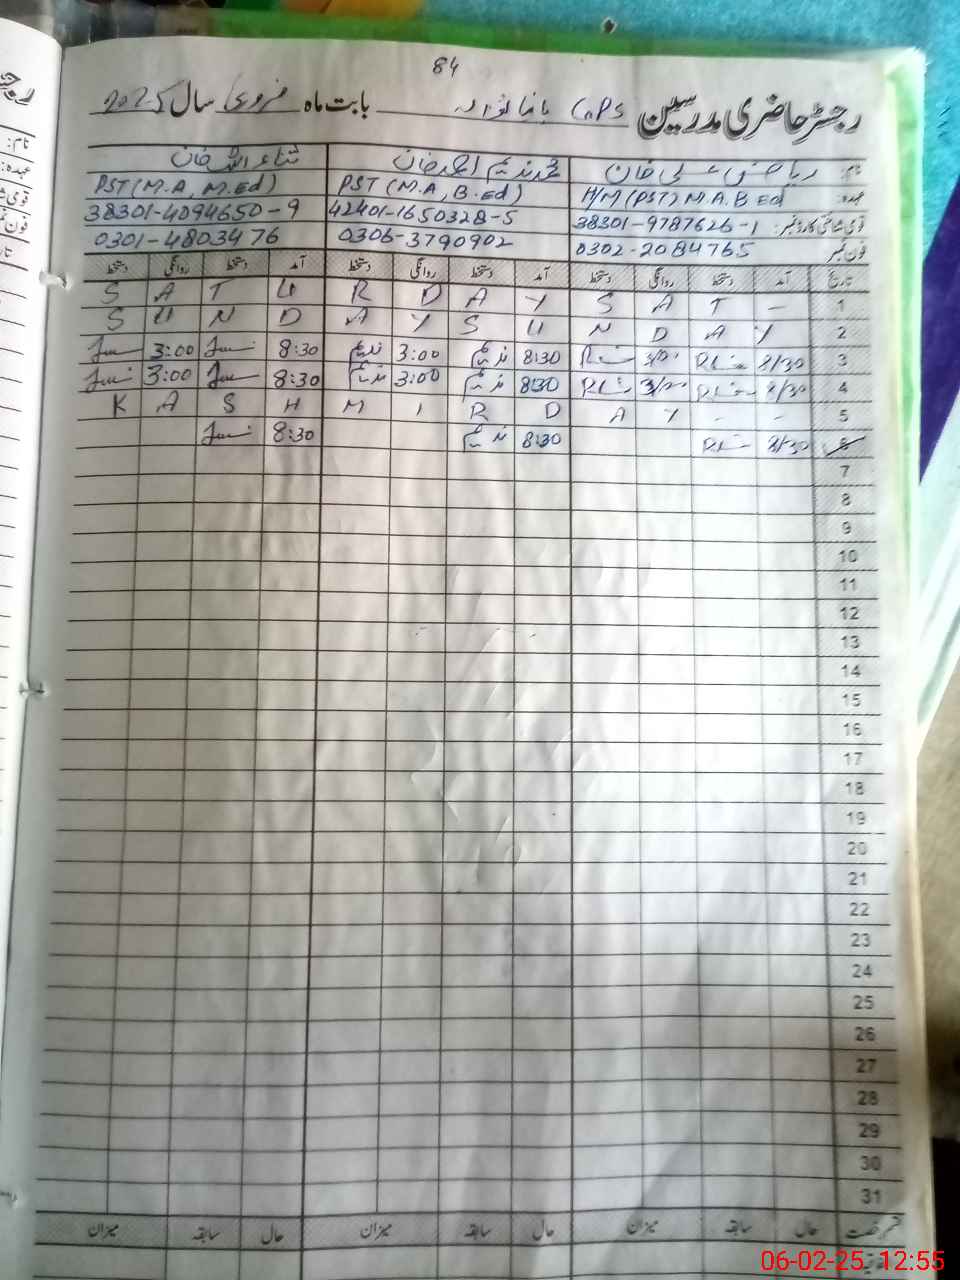 84
رجسٹر حاضری مدرسین GPS بابت ماہ فروری سال 2025
نام: ریاض علی خان محمد ندیم احمد خان ثناء اللہ خان
عہدہ: H/M (PST) M.A. B Ed PST (M.A, B.Ed) PST (M.A, M.Ed)
قومی شناختی کارڈ نمبر: 38301-9787626-1 42401-1650328-5 38301-4094650-9
فون نمبر 0302-2084765 0306-3790902 0301-4803476
تاریخ آمد دستخط روانگی دستخط آمد دستخط روانگی دستخط آمد دستخط روانگی دستخط
S A T U R D A Y S A T - 1
S U N D A Y S U N D A Y 2
3:00 8:30 ندیم 3:00 ندیم 8:30 3/00 8/30 3
3:00 8:30 ندیم 3:00 ندیم 8:30 3/00 8/30 4
K A S H M I R D A Y - - 5
8:30 ندیم 8:30 8/30 6
7
8
9
10
11
12
13
14
15
16
17
18
19
20
21
22
23
24
25
26
27
28
29
30
31
قسم رخصت حال سابقہ میزان حال سابقہ میزان حال سابقہ میزان
06-02-25 12:55